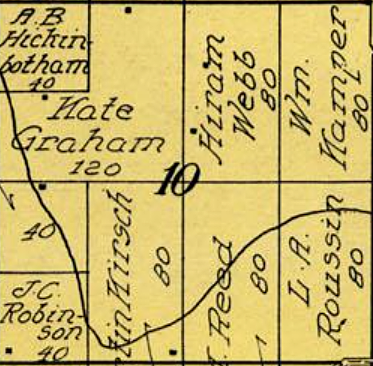 A.B.
Hickin-
botham
40
Kate
Graham
120
Hiram
Webb
80
Wm.
Kamper
80
10
40
J.C.
Robin-
son
40
Kirsch
80
Reed
80
L.A.
Roussin
80